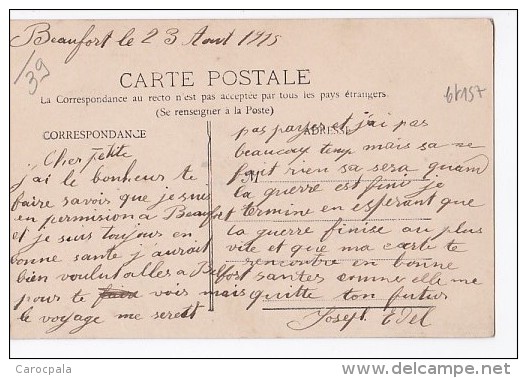 Beaufort le 23 Aout 1915
39
6F157
CARTE POSTALE
La Correspondance au recto n'est pas acceptée par tous les pays étrangers.
(Se renseigner à la Poste)
CORRESPONDANCE
ADRESSE
M
Cher Petite
j'ai le bonheur te
faire savoir que je suis
en permision a Beaufort
et je suis toujours en
bonne santé j'aurait
bien voulut alles a Belfort
pour te voir mais
le voyage me serest
pas payes et j'ai pas
beaucoup temp mais sa ne
fait rien sa sera quand
la guerre est fini je
termine en esperant que
la guerre finise au plus
vite et que ma carte te
rencontre en bonne
santes comme elle me
quitte ton futur
Joseph
www.delcampe.net
Carocpala